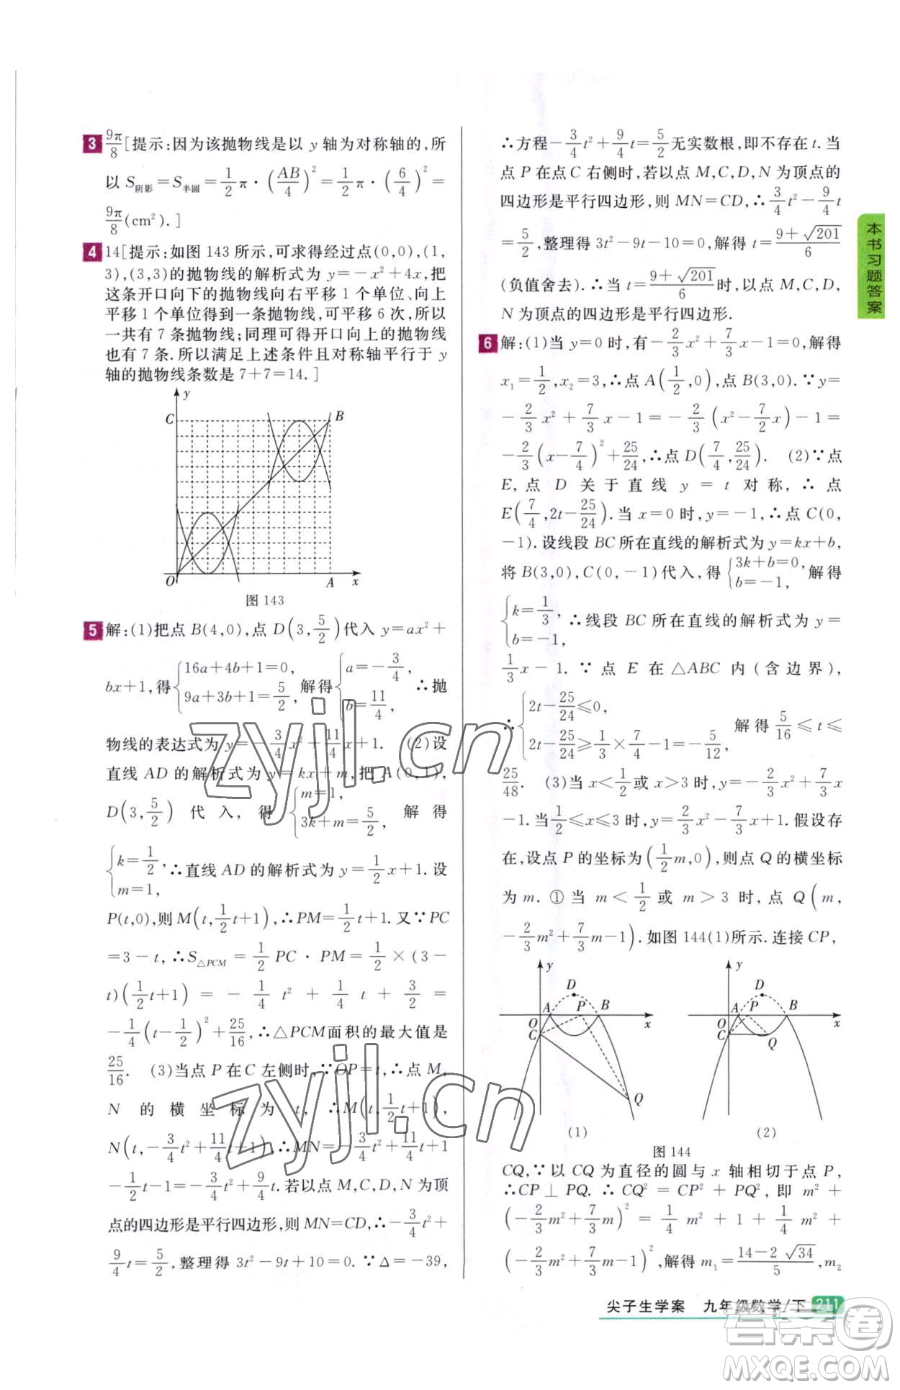 3 9π/8[提示:因为该抛物线是以 y 轴为对称轴的,所
以 S阴影=S半圆=1/2π·(AB/4)²=1/2π·(6/4)²=
9π/8(cm²).]
4 14[提示:如图 143 所示,可求得经过点(0,0),(1,
3),(3,3)的抛物线的解析式为 y=-x²+4x,把
这条开口向下的抛物线向右平移 1 个单位、向上
平移 1 个单位得到一条抛物线,可平移 6 次,所以
一共有 7 条抛物线;同理可得开口向上的抛物线
也有 7 条.所以满足上述条件且对称轴平行于 y
轴的抛物线条数是 7+7=14.]
y
C B
O A x
图 143
5 解:(1)把点 B(4,0),点 D(3,5/2)代入 y=ax²+
bx+1,得{16a+4b+1=0, 9a+3b+1=5/2, 解得{a=-3/4, b=11/4, ∴抛
物线的表达式为 y=-3/4x²+11/4x+1. (2)设
直线 AD 的解析式为 y=kx+m,把 A(0,1),
D(3,5/2)代入,得{m=1, 3k+m=5/2, 解得
{k=1/2, m=1, ∴直线 AD 的解析式为 y=1/2x+1.设
P(t,0),则 M(t,1/2t+1),∴PM=1/2t+1.又∵PC
=3-t,∴S△PCM=1/2PC·PM=1/2×(3-
t)(1/2t+1)=-1/4t²+1/4t+3/2=
-1/4(t-1/2)²+25/16,∴△PCM面积的最大值是
25/16. (3)当点 P 在 C 左侧时,∵OP=t,∴点 M,
N 的横坐标为 t,∴M(t,1/2t+1),
N(t,-3/4t²+11/4t+1),∴MN=-3/4t²+11/4t+1
-1/2t-1=-3/4t²+9/4t.若以点 M,C,D,N 为顶
点的四边形是平行四边形,则 MN=CD,∴-3/4t²+
9/4t=5/2,整理得 3t²-9t+10=0.∵Δ=-39,
∴方程-3/4t²+9/4t=5/2无实数根,即不存在 t.当
点 P 在点 C 右侧时,若以点 M,C,D,N 为顶点的
四边形是平行四边形,则 MN=CD,∴3/4t²-9/4t
=5/2,整理得 3t²-9t-10=0,解得 t=(9+√201)/6
(负值舍去).当 t=(9+√201)/6时,以点 M,C,D,
N 为顶点的四边形是平行四边形.
6 解:(1)当 y=0 时,有-2/3x²+7/3x-1=0,解得
x₁=1/2,x₂=3,∴点 A(1/2,0),点 B(3,0).∵y=
-2/3x²+7/3x-1=-2/3(x²-7/2x)-1=
-2/3(x-7/4)²+25/24,∴点 D(7/4,25/24). (2)∵点
E,点 D 关于直线 y=t 对称,∴点
E(7/4,2t-25/24).当 x=0 时,y=-1,∴点 C(0,
-1).设线段 BC 所在直线的解析式为 y=kx+b,
将 B(3,0),C(0,-1)代入,得{3k+b=0, b=-1, 解得
{k=1/3, b=-1, ∴线段 BC 所在直线的解析式为 y=
1/3x-1.∵点 E 在△ABC 内(含边界),
∴{2t-25/24≤0, 2t-25/24≥1/3×7/4-1=-5/12, 解得5/16≤t≤
25/48. (3)当 x<1/2或 x>3 时,y=-2/3x²+7/3x
-1.当1/2≤x≤3 时,y=2/3x²-7/3x+1.假设存
在,设点 P 的坐标为(1/2m,0),则点 Q 的横坐标
为 m.①当 m<1/2或 m>3 时,点 Q(m,
-2/3m²+7/3m-1).如图 144(1)所示.连接 CP,
y D A P B O C x Q
(1)
y D A P B O C x Q
(2)
图 144
CQ,∵以 CQ 为直径的圆与 x 轴相切于点 P,
∴CP⊥PQ.∴CQ²=CP²+PQ²,即 m²+
(-2/3m²+7/3m)²=1/4m²+1+1/4m²+
(-2/3m²+7/3m-1)²,解得 m₁=(14-2√34)/5
本书习题答案
尖子生学案 九年级数学/下 211
zyjl.cn
zyjl.cn
答案圈
MXQE.COM